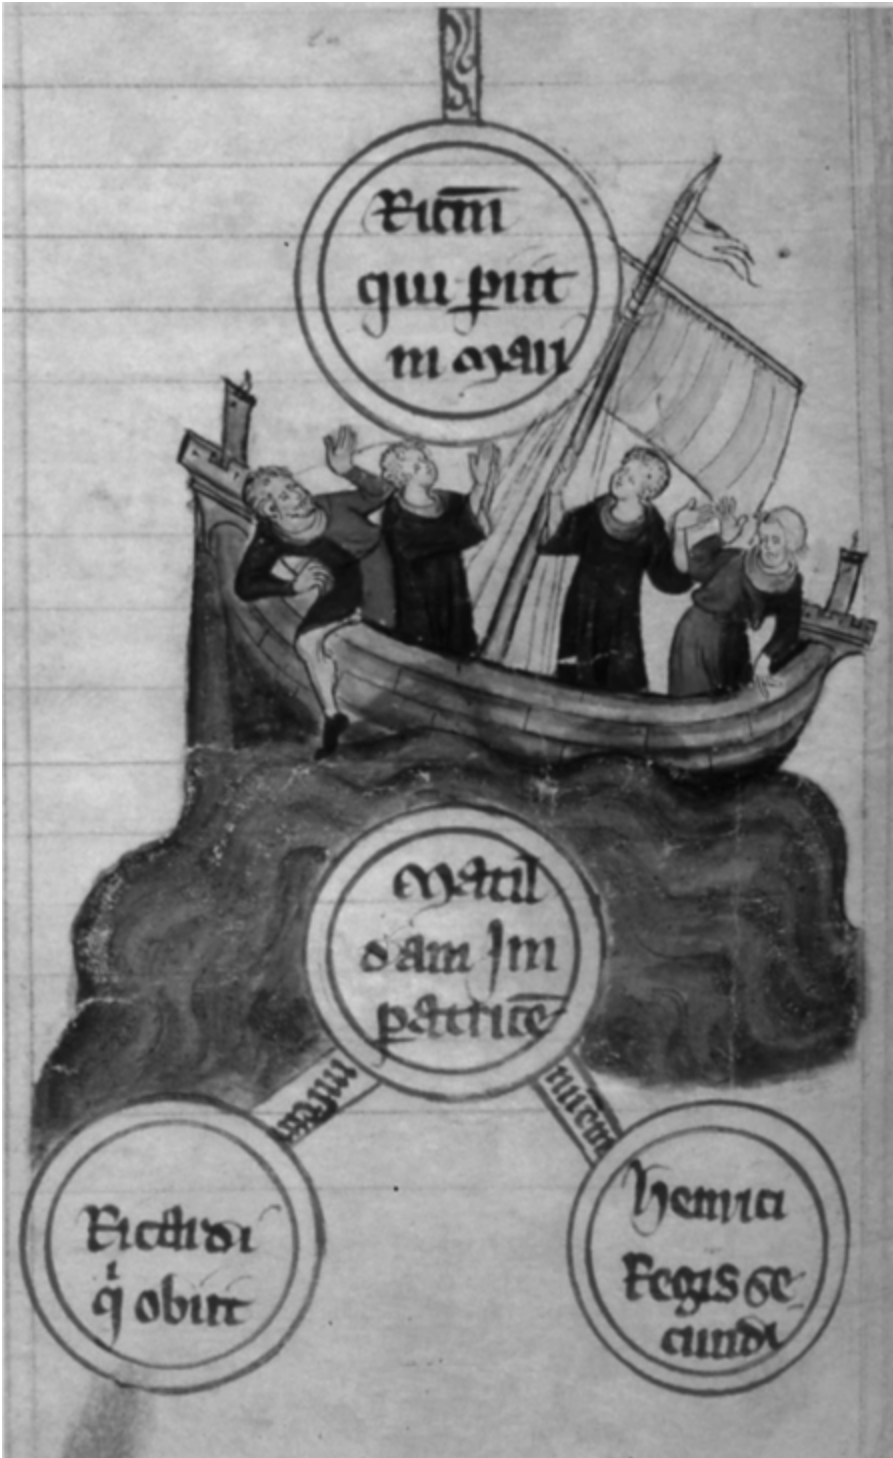 Ricm̄
qui ꝑiit
in mari
Matil
dam Im
ꝑatricē
matrem
Ricardi
qͥ obiit
Henrici
Regis se
cundi